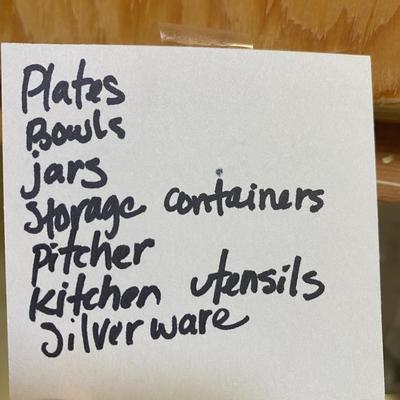 Plates
Bowls
jars
Storage containers
Pitcher
Kitchen utensils
Silverware